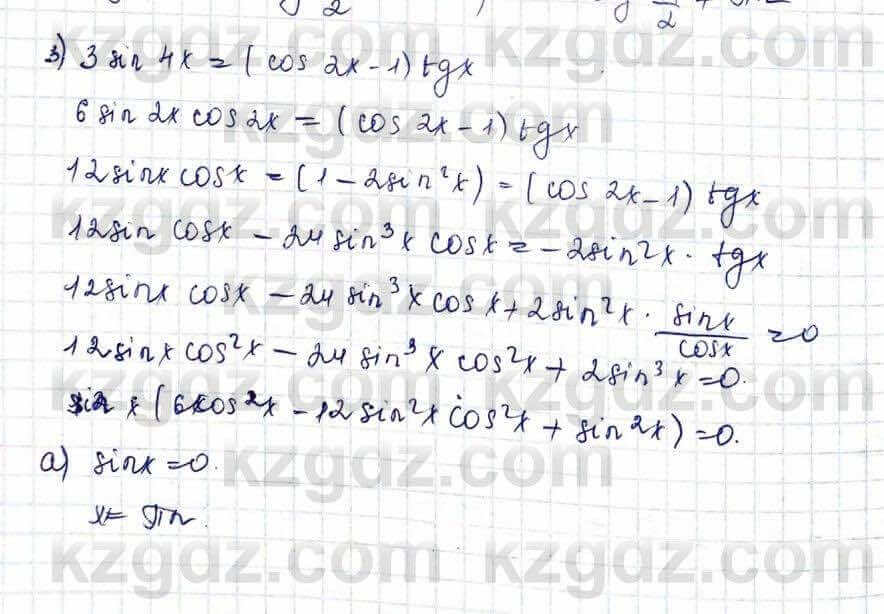 3) 3 sin 4x = (cos 2x - 1) tgx
6 sin 2x cos 2x = (cos 2x - 1) tgx
12 sinx cosx = (1 - 2sin²x) = (cos 2x - 1) tgx
12sin cosx - 24 sin³x cosx = -2sin²x · tgx
12sinx cosx - 24 sin³x cosx + 2sin²x · sinx/cosx = 0
12sinx cos²x - 24 sin³x cos²x + 2sin³x = 0.
sin x (6cos²x - 12sin²x cos²x + sin²x) = 0.
a) sinx = 0.
x = πn.
kzgdz.com